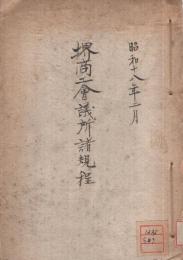 昭和十八年三月
堺商工會議所諸規程